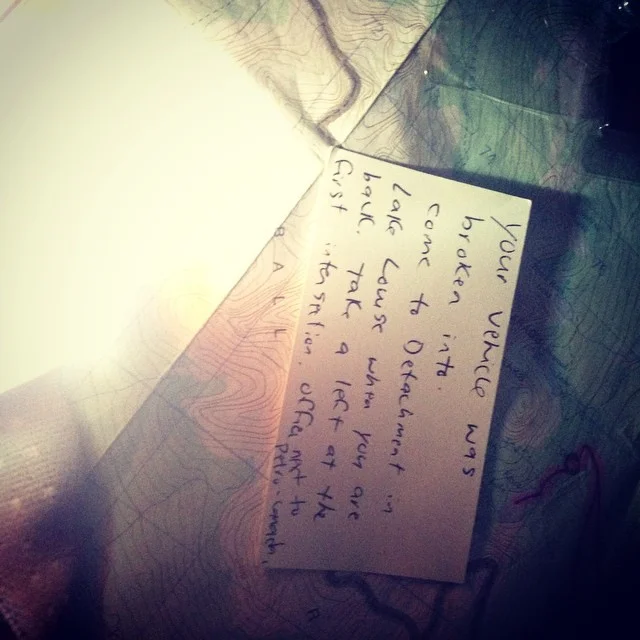 Your Vehicle was
broken into.
Come to Detachment in
Lake Louise when you are
back. Take a left at the
first intersection. Office next to
Petro-Canada